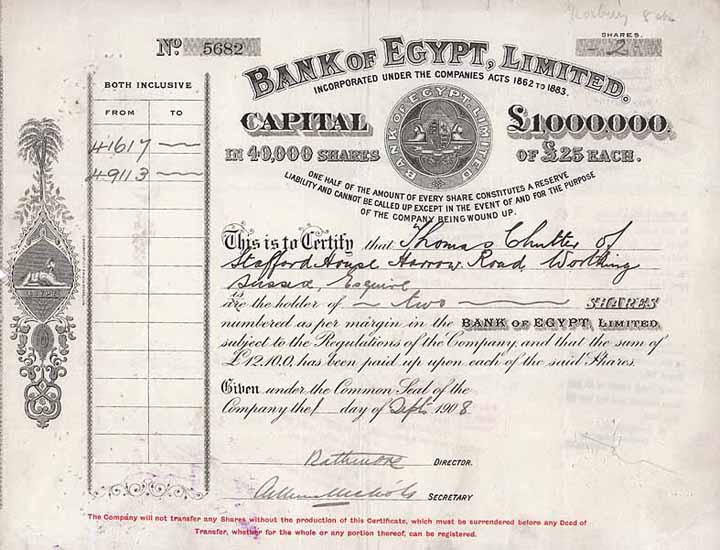 SHARES.
No. 5682
- 2
BANK OF EGYPT, LIMITED.
INCORPORATED UNDER THE COMPANIES ACTS 1862 TO 1883.
BOTH INCLUSIVE
FROM TO
41617
49113
CAPITAL £1,000,000.
IN 40,000 SHARES OF £25 EACH.
BANK OF EGYPT, LIMITED
ONE HALF OF THE AMOUNT OF EVERY SHARE CONSTITUTES A RESERVE
LIABILITY AND CANNOT BE CALLED UP EXCEPT IN THE EVENT OF AND FOR THE PURPOSE
OF THE COMPANY BEING WOUND UP.
This is to Certify that Thomas Chutter of
Stafford House Harrow Road, Worthing
Sussex, Esquire
are the holder of two SHARES
numbered as per margin in the BANK OF EGYPT, LIMITED
subject to the Regulations of the Company, and that the sum of
£12.10.0, has been paid up upon each of the said Shares.
Given under the Common Seal of the
Company the 1 day of Septr 1908
DIRECTOR.
SECRETARY
The Company will not transfer any Shares without the production of this Certificate, which must be surrendered before any Deed of
Transfer, whether for the whole or any portion thereof, can be registered.